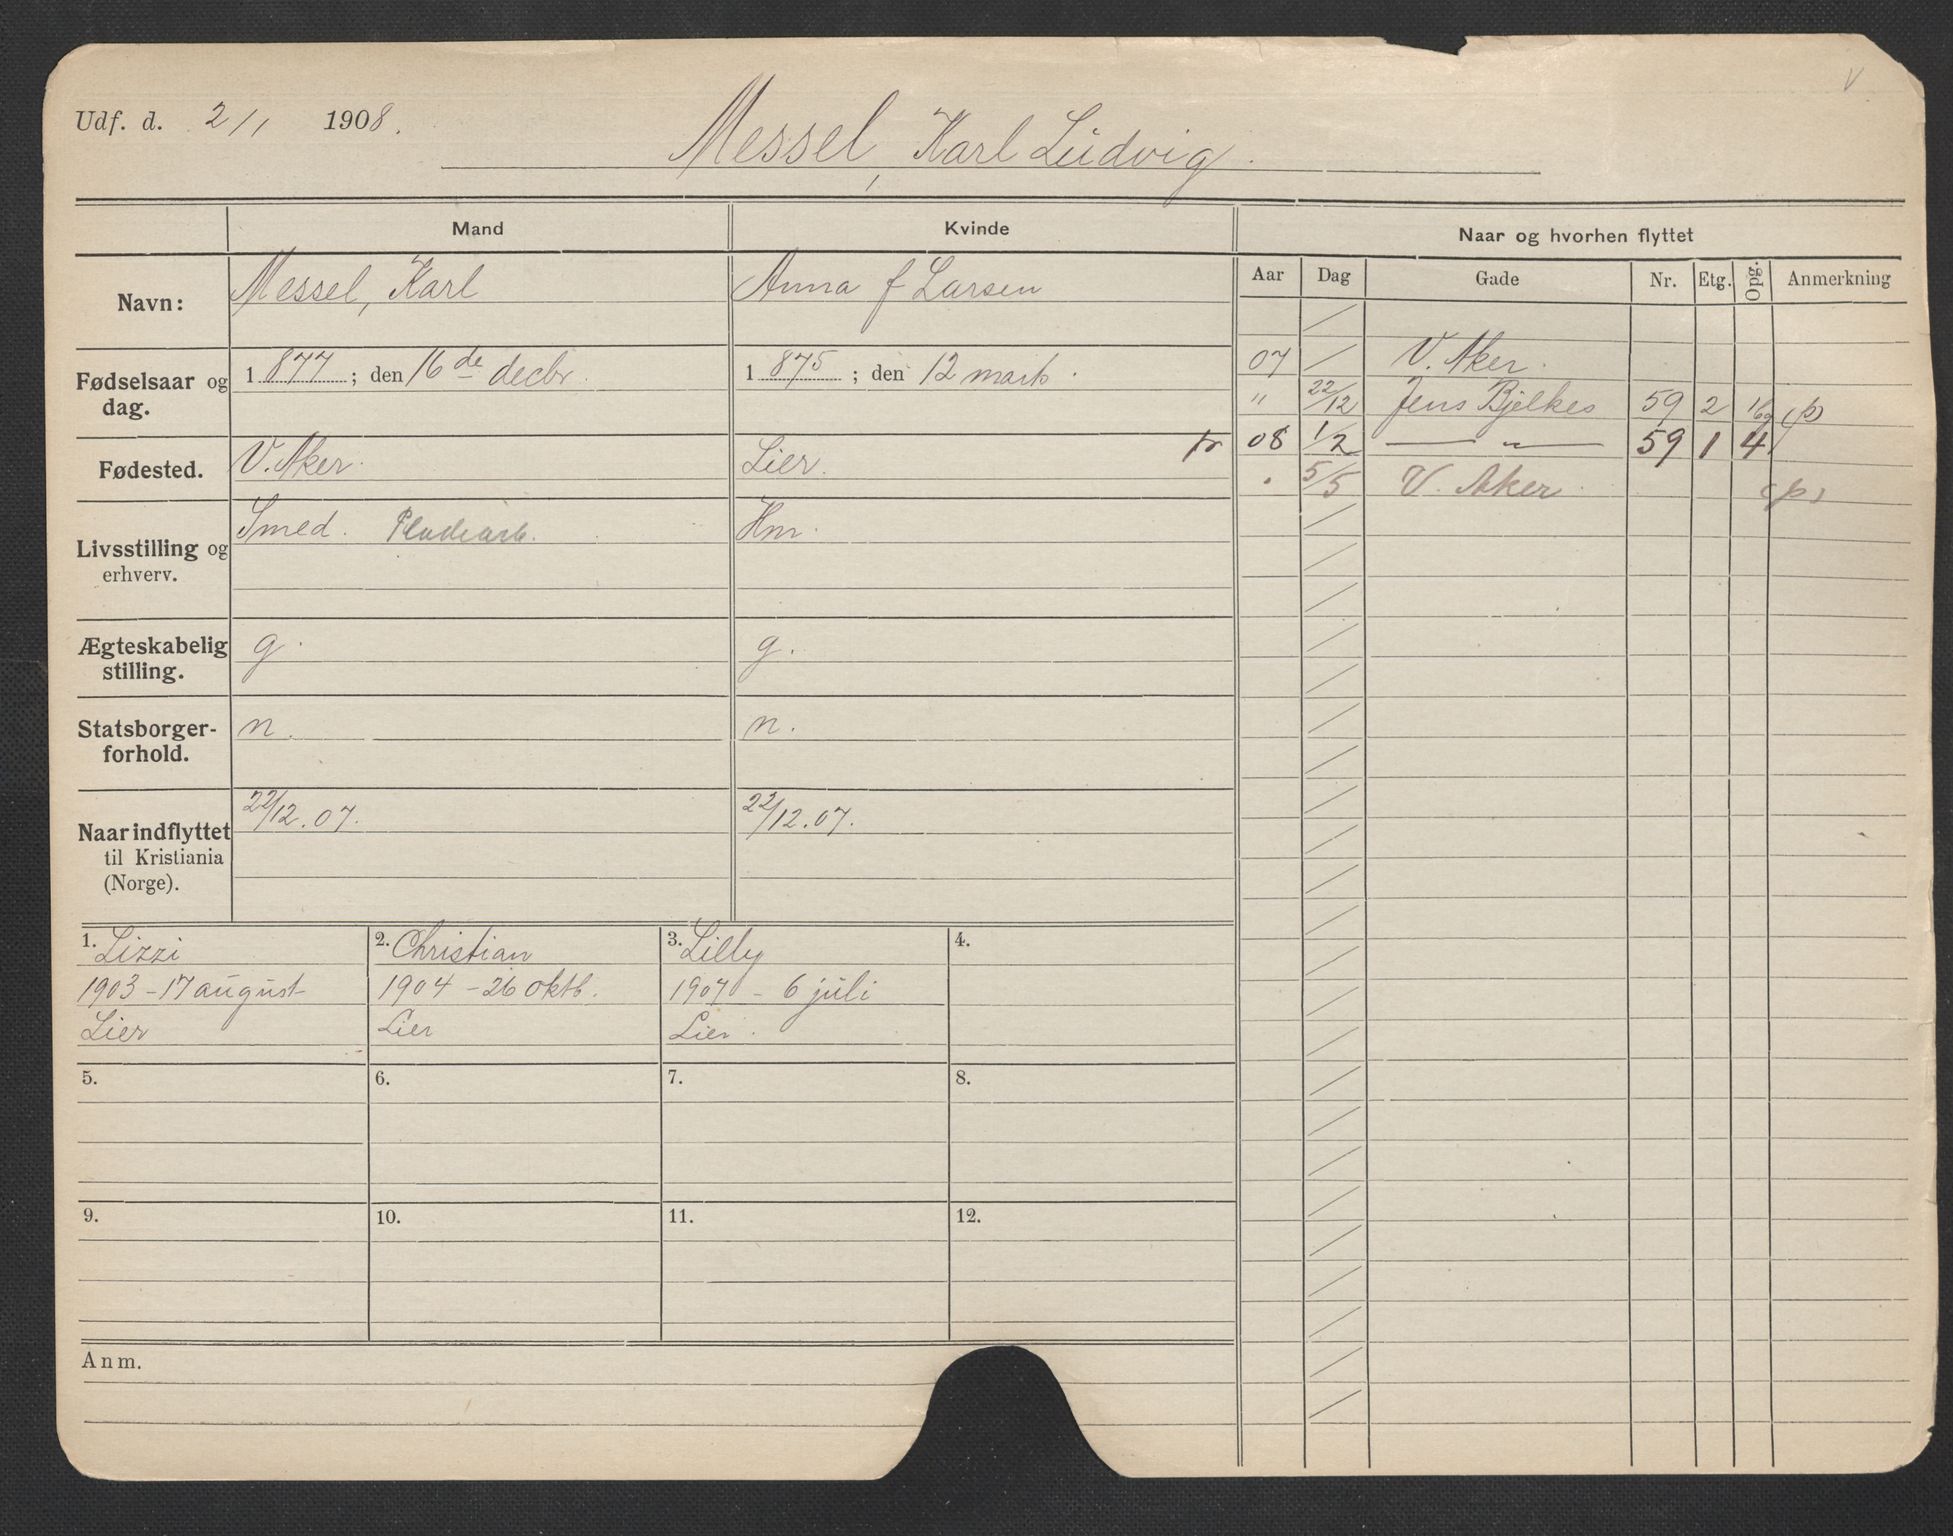 Udf. d. 2/1 1908.
Messel, Karl Ludvig.
Mand Kvinde Naar og hvorhen flyttet
Aar Dag Gade Nr. Etg. Opg. Anmerkning
Navn: Messel, Karl Anna f Larsen
07 V. Aker.
Fødselsaar og dag. 1877; den 16de decbr. 1875; den 12 marts.
" 22/12 Jens Bjelkes 59 2 (p)
Fødested. V. Aker. Lier.
08 1/2 — " — 59 1 4
5/5 V. Aker. (p)
Livsstilling og erhverv. Smed. Hm.
Ægteskabelig stilling. g. g.
Statsborgerforhold. n. n.
Naar indflyttet til Kristiania (Norge). 22/12.07. 22/12.07.
1. Lizzi
1903 - 17 august
Lier
2. Christian
1904 - 26 oktb.
Lier
3. Lilly
1907 - 6 juli
Lier.
4.
5. 6. 7. 8.
9. 10. 11. 12.
Anm.